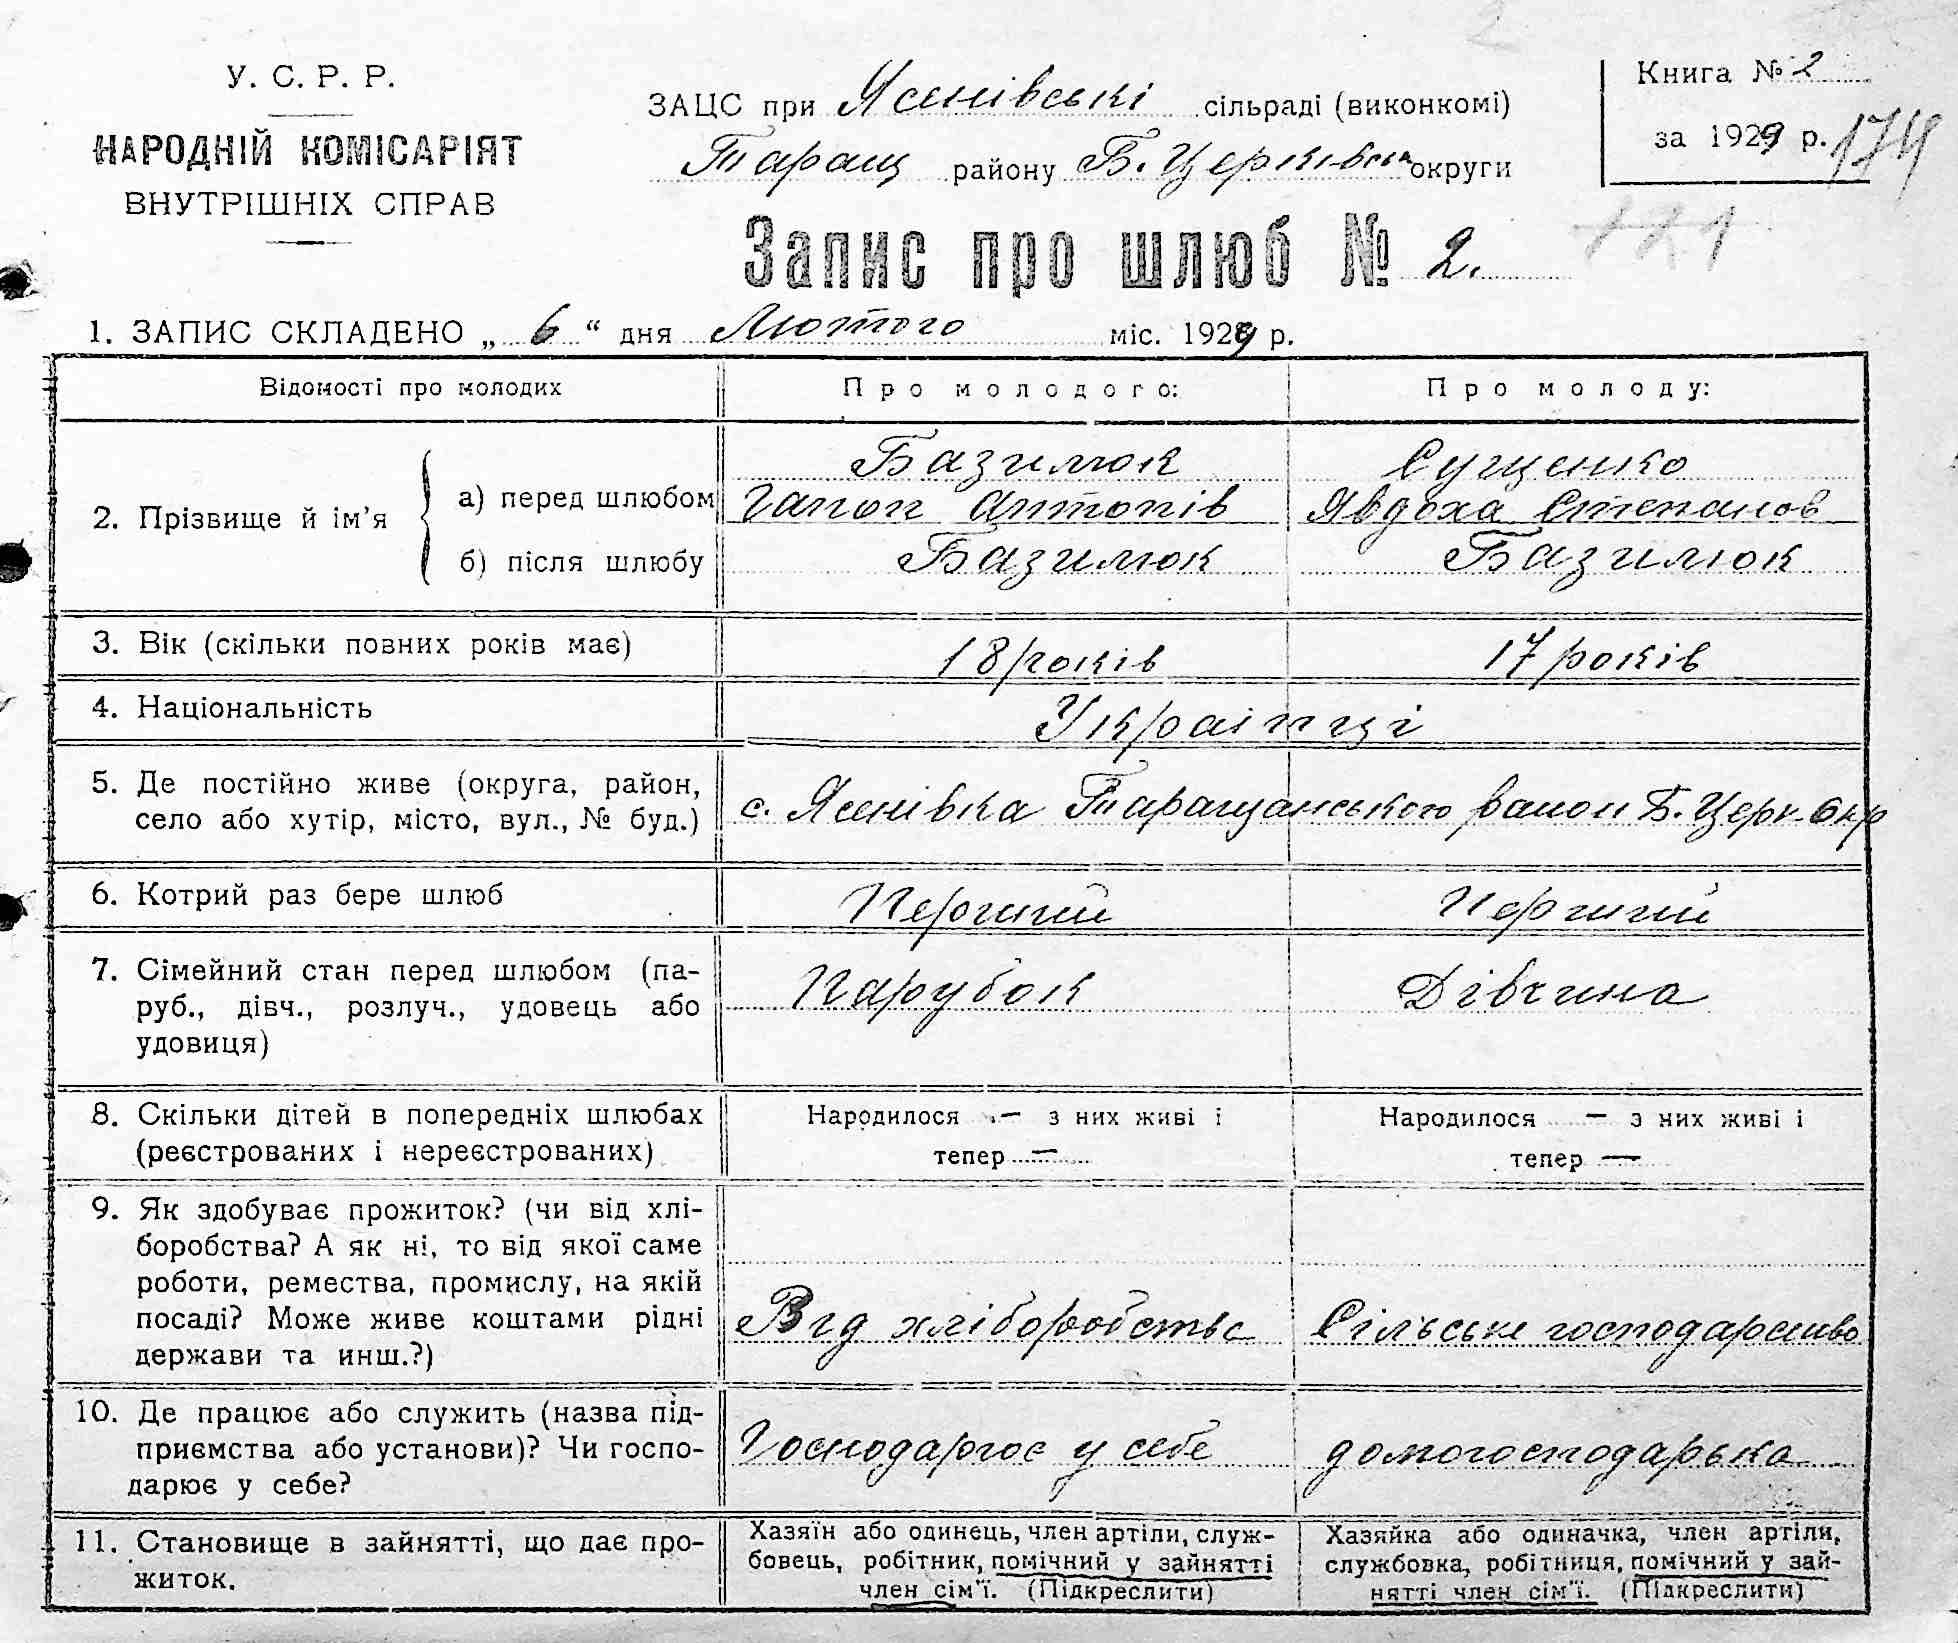 У. С. Р. Р.
НАРОДНІЙ КОМІСАРІЯТ
ВНУТРІШНІХ СПРАВ
ЗАЦС при Ясенівські сільраді (виконкомі)
Таращ району Б. Церківськ округи
Книга № 2
за 1929 р.
174
121
Запис про шлюб № 2.
1. ЗАПИС СКЛАДЕНО „ 6 “ дня Лютого міс. 1929 р.
Відомості про молодих
Про молодого:
Про молоду:
2. Прізвище й ім’я
а) перед шлюбом
Базилюк
Гапон Антонів
Сущенко
Явдоха Степанов
б) після шлюбу
Базилюк
Базилюк
3. Вік (скільки повних років має)
18 років
17 років
4. Національність
Українці
5. Де постійно живе (округа, район,
село або хутір, місто, вул., № буд.)
с. Ясенівка Таращанського район Б. Церк. Окр
6. Котрий раз бере шлюб
Перший
Перший
7. Сімейний стан перед шлюбом (па-
руб., дівч., розлуч., удовець або
удовиця)
Парубок
Дівчина
8. Скільки дітей в попередніх шлюбах
(реєстрованих і нереєстрованих)
Народилося — з них живі і
тепер —
Народилося — з них живі і
тепер —
9. Як здобуває прожиток? (чи від хлі-
боробства? А як ні, то від якої саме
роботи, ремества, промислу, на якій
посаді? Може живе коштами рідні
держави та инш.?)
Від хліборобства
Сільське господарство
10. Де працює або служить (назва під-
приємства або установи)? Чи госпо-
дарює у себе?
Господарює у себе
домогосподарька
11. Становище в зайнятті, що дає про-
житок.
Хазяїн або одинець, член артіли, служ-
бовець, робітник, помічний у зайнятті
член сім’ї. (Підкреслити)
Хазяйка або одиначка, член артіли,
службовка, робітниця, помічний у зай-
нятті член сім’ї. (Підкреслити)